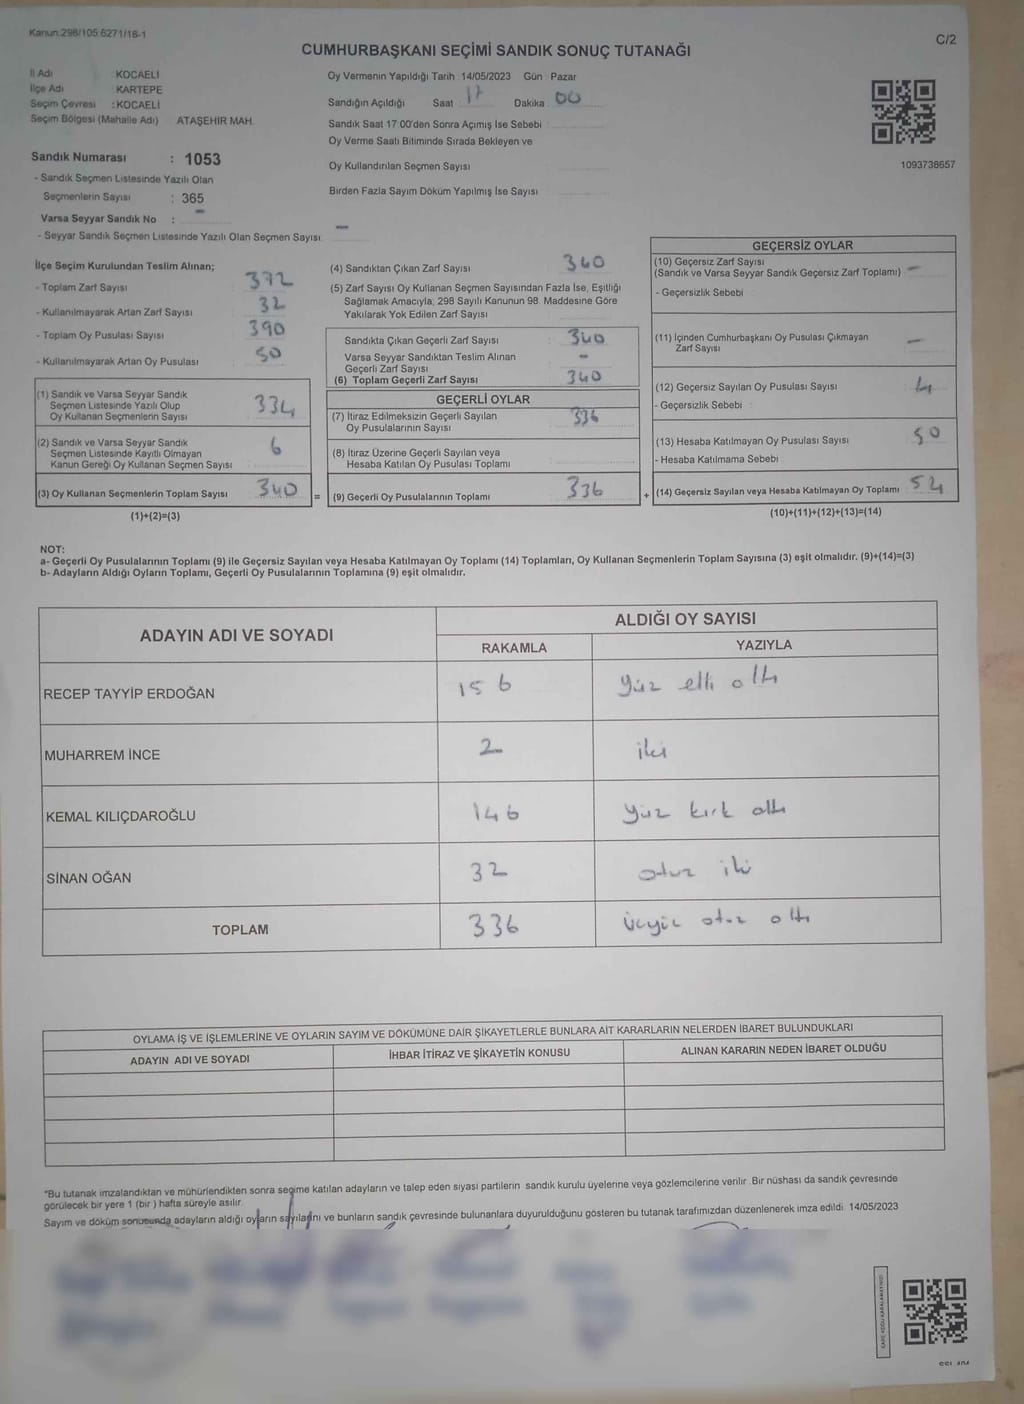 Kanun:298/105 6271/18-1
C/2
CUMHURBAŞKANI SEÇİMİ SANDIK SONUÇ TUTANAĞI
İl Adı : KOCAELİ
İlçe Adı : KARTEPE
Seçim Çevresi : KOCAELİ
Seçim Bölgesi (Mahalle Adı) ATAŞEHİR MAH.
Sandık Numarası : 1053
- Sandık Seçmen Listesinde Yazılı Olan
Seçmenlerin Sayısı : 365
Varsa Seyyar Sandık No : -
- Seyyar Sandık Seçmen Listesinde Yazılı Olan Seçmen Sayısı -
Oy Vermenin Yapıldığı Tarih : 14/05/2023 Gün : Pazar
Sandığın Açıldığı Saat : 17 Dakika : 00
Sandık Saat 17:00'den Sonra Açımış İse Sebebi :
Oy Verme Saati Bitiminde Sırada Bekleyen ve
Oy Kullandırılan Seçmen Sayısı
Birden Fazla Sayım Döküm Yapılmış İse Sayısı
1093738657
İlçe Seçim Kurulundan Teslim Alınan;
- Toplam Zarf Sayısı : 372
- Kullanılmayarak Artan Zarf Sayısı : 32
- Toplam Oy Pusulası Sayısı : 390
- Kullanılmayarak Artan Oy Pusulası : 50
(1) Sandık ve Varsa Seyyar Sandık
Seçmen Listesinde Yazılı Olup
Oy Kullanan Seçmenlerin Sayısı 334
(2) Sandık ve Varsa Seyyar Sandık
Seçmen Listesinde Kayıtlı Olmayan
Kanun Gereği Oy Kullanan Seçmen Sayısı 6
(3) Oy Kullanan Seçmenlerin Toplam Sayısı 340 =
(1)+(2)=(3)
(4) Sandıktan Çıkan Zarf Sayısı 340
(5) Zarf Sayısı Oy Kullanan Seçmen Sayısından Fazla İse, Eşitliği
Sağlamak Amacıyla, 298 Sayılı Kanunun 98. Maddesine Göre
Yakılarak Yok Edilen Zarf Sayısı
Sandıkta Çıkan Geçerli Zarf Sayısı : 340
Varsa Seyyar Sandıktan Teslim Alınan
Geçerli Zarf Sayısı -
(6) Toplam Geçerli Zarf Sayısı 340
GEÇERLİ OYLAR
(7) İtiraz Edilmeksizin Geçerli Sayılan
Oy Pusulalarının Sayısı 336
(8) İtiraz Üzerine Geçerli Sayılan veya
Hesaba Katılan Oy Pusulası Toplamı
(9) Geçerli Oy Pusulalarının Toplamı 336 +
GEÇERSİZ OYLAR
(10) Geçersiz Zarf Sayısı
(Sandık ve Varsa Seyyar Sandık Geçersiz Zarf Toplamı) -
- Geçersizlik Sebebi :
(11) İçinden Cumhurbaşkanı Oy Pusulası Çıkmayan
Zarf Sayısı -
(12) Geçersiz Sayılan Oy Pusulası Sayısı 4
- Geçersizlik Sebebi :
(13) Hesaba Katılmayan Oy Pusulası Sayısı 50
- Hesaba Katılmama Sebebi :
(14) Geçersiz Sayılan veya Hesaba Katılmayan Oy Toplamı 54
(10)+(11)+(12)+(13)=(14)
NOT:
a- Geçerli Oy Pusulalarının Toplamı (9) ile Geçersiz Sayılan veya Hesaba Katılmayan Oy Toplamı (14) Toplamları, Oy Kullanan Seçmenlerin Toplam Sayısına (3) eşit olmalıdır. (9)+(14)=(3)
b- Adayların Aldığı Oyların Toplamı, Geçerli Oy Pusulalarının Toplamına (9) eşit olmalıdır.
ADAYIN ADI VE SOYADI ALDIĞI OY SAYISI
RAKAMLA YAZIYLA
RECEP TAYYİP ERDOĞAN 156 yüz elli altı
MUHARREM İNCE 2 iki
KEMAL KILIÇDAROĞLU 146 yüz kırk altı
SİNAN OĞAN 32 otuz iki
TOPLAM 336 üçyüz otuz altı
OYLAMA İŞ VE İŞLEMLERİNE VE OYLARIN SAYIM VE DÖKÜMÜNE DAİR ŞİKAYETLERLE BUNLARA AİT KARARLARIN NELERDEN İBARET BULUNDUKLARI
ADAYIN ADI VE SOYADI İHBAR İTİRAZ VE ŞİKAYETİN KONUSU ALINAN KARARIN NEDEN İBARET OLDUĞU
*Bu tutanak imzalandıktan ve mühürlendikten sonra seçime katılan adayların ve talep eden siyasi partilerin sandık kurulu üyelerine veya gözlemcilerine verilir. Bir nüshası da sandık çevresinde
görülecek bir yere 1 (bir) hafta süreyle asılır.
Sayım ve döküm sonucunda adayların aldığı oyların sayılarını ve bunların sandık çevresinde bulunanlara duyurulduğunu gösteren bu tutanak tarafımızdan düzenlenerek imza edildi. 14/05/2023
KARE KODU KARALAMAYINIZ!